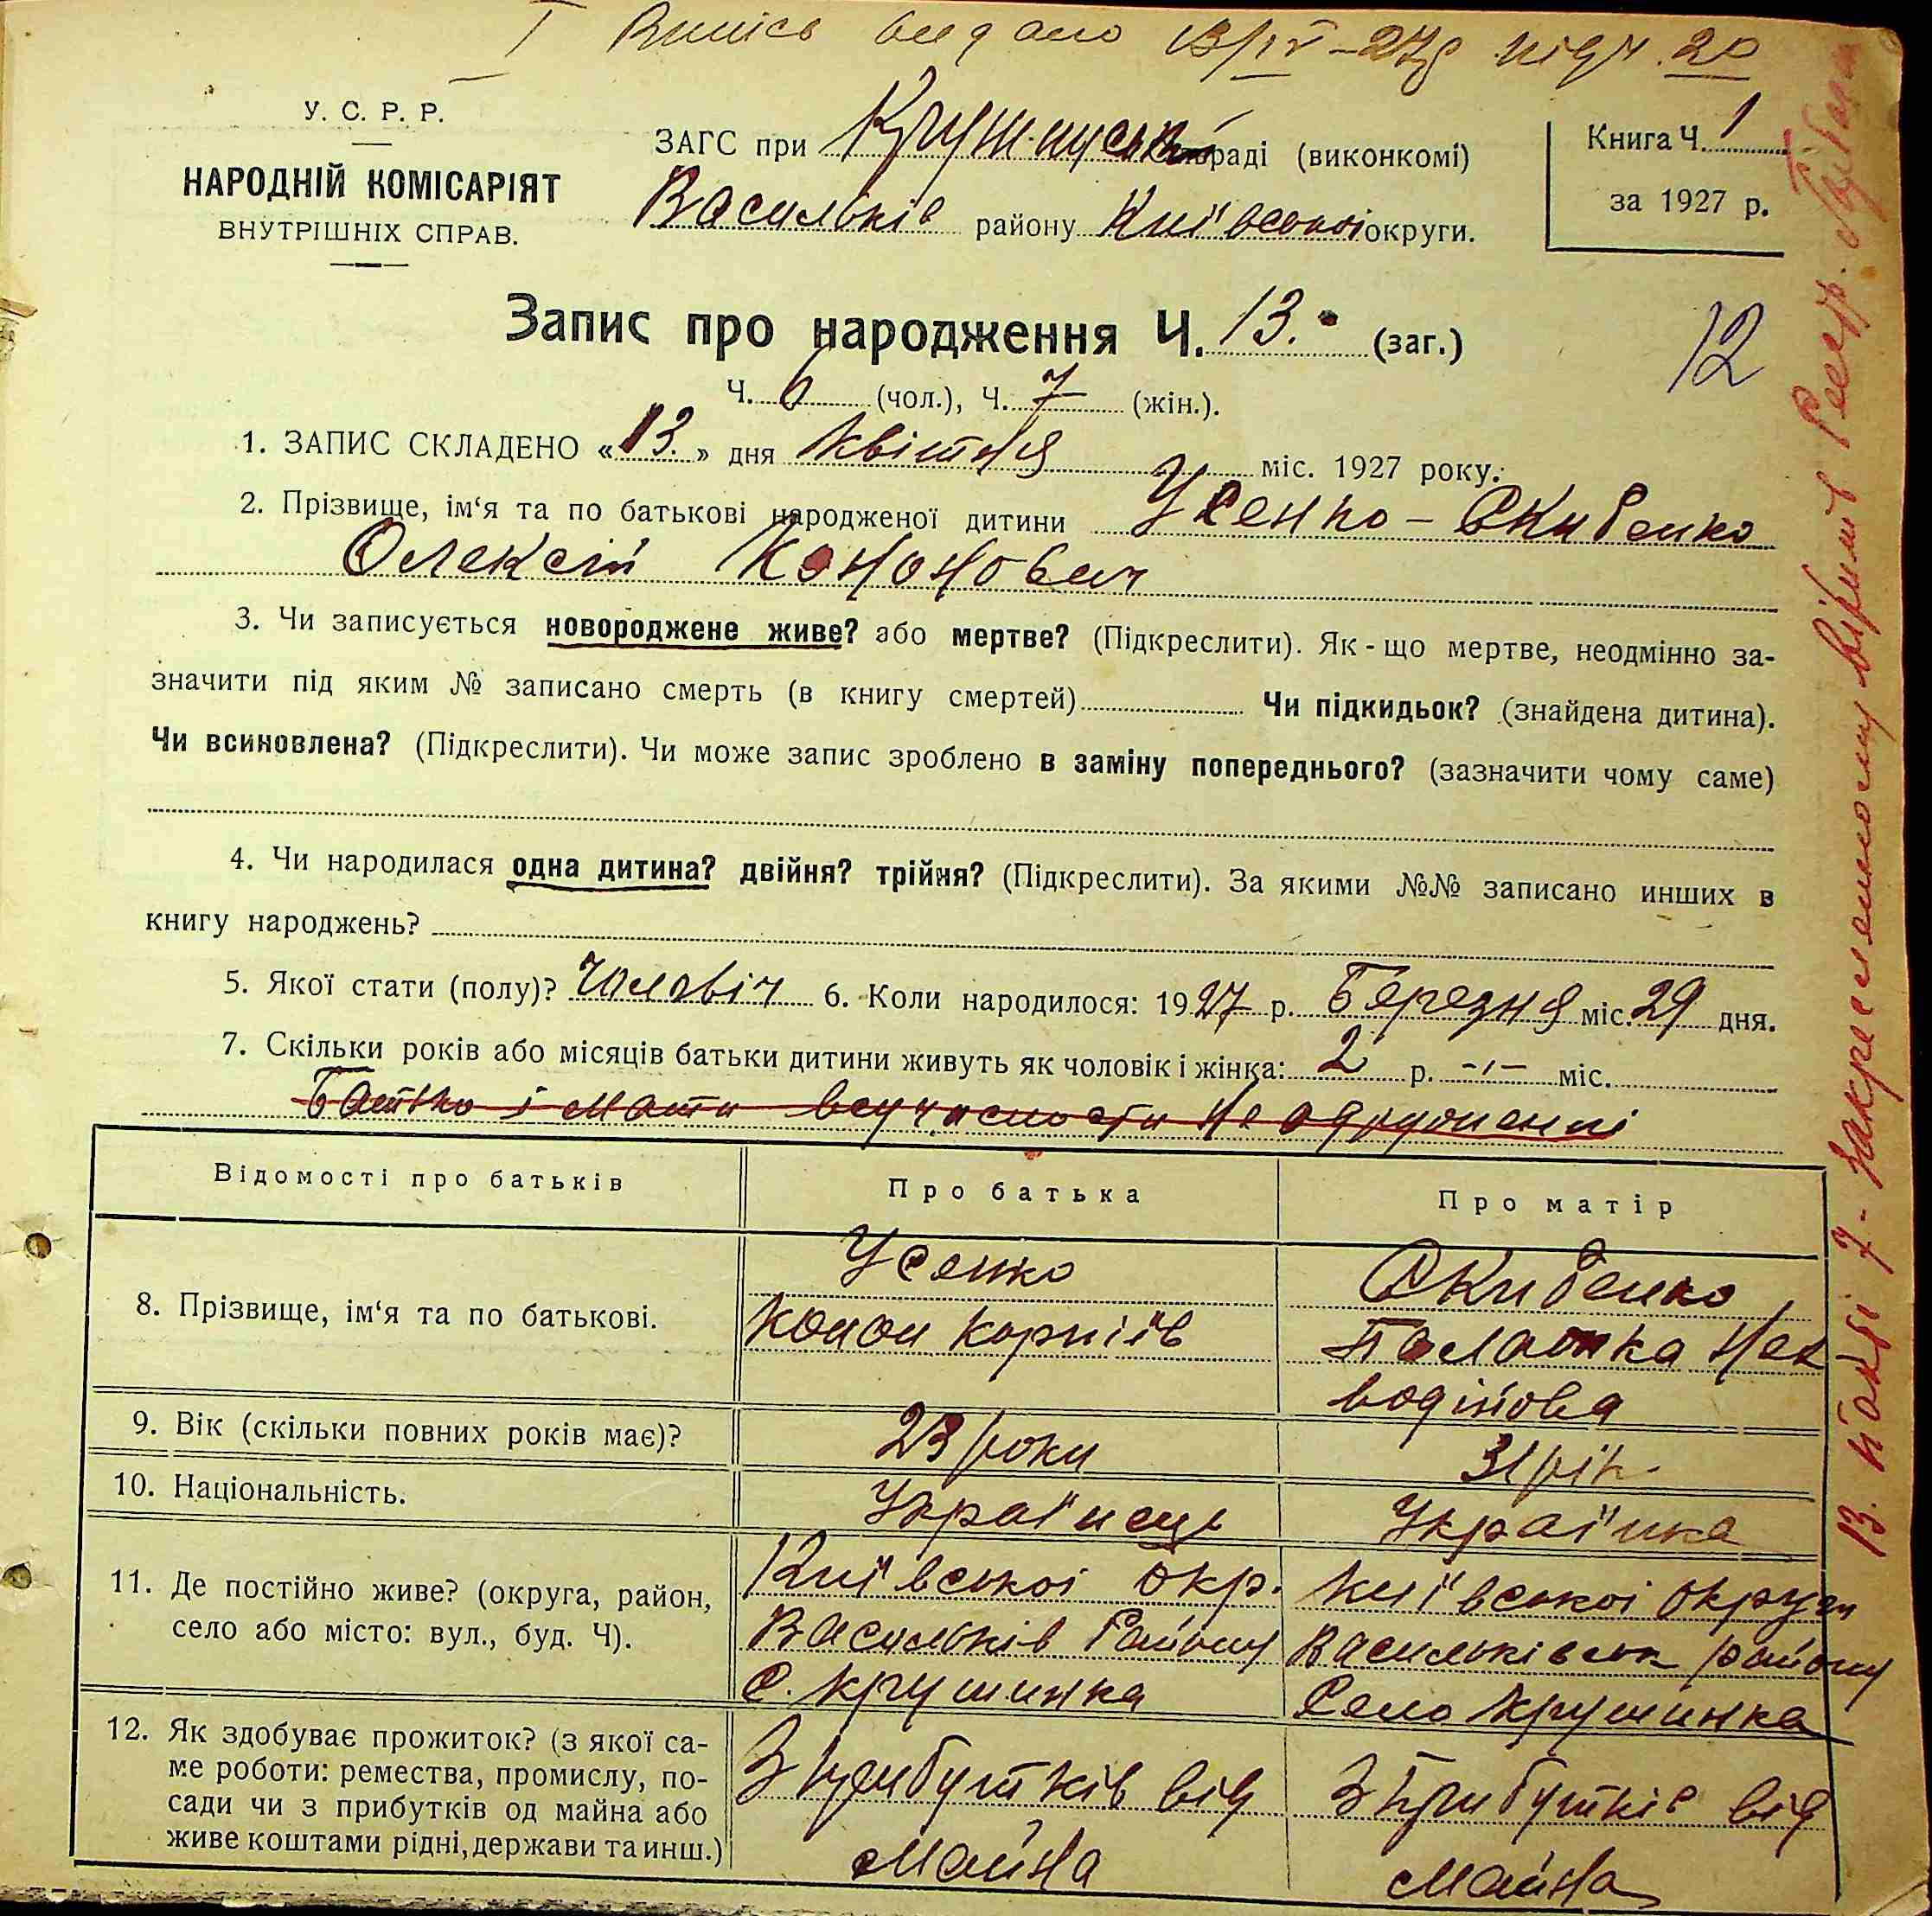 I Випись видано 13/IV–27р
У. С. Р. Р.
НАРОДНІЙ КОМІСАРІЯТ
ВНУТРІШНІХ СПРАВ.
ЗАГС при раді (виконкомі)
Васильків району Київської округи.
Книга Ч. 1
за 1927 р.
12
Запис про народження Ч. 13. (заг.)
Ч. 6 (чол.), Ч. 7 (жін.).
1. ЗАПИС СКЛАДЕНО «13.» дня Квітня міс. 1927 року.
2. Прізвище, ім‘я та по батькові народженої дитини Усенко – Скибенко
Олексій Кононович
3. Чи записується новороджене живе? або мертве? (Підкреслити). Як-що мертве, неодмінно за-
значити під яким № записано смерть (в книгу смертей) Чи підкидьок? (знайдена дитина).
Чи всиновлена? (Підкреслити). Чи може запис зроблено в заміну попереднього? (зазначити чому саме)
4. Чи народилася одна дитина? двійня? трійня? (Підкреслити). За якими №№ записано инших в
книгу народжень?
5. Якої стати (полу)? Чоловіч 6. Коли народилося: 1927 р. Березня міс. 29 дня.
7. Скільки років або місяців батьки дитини живуть як чоловік і жінка: 2 р. -"- міс.
Батько і мати
Відомості про батьків
Про батька
Про матір
8. Прізвище, ім‘я та по батькові.
Усенко
Конон Корніїв
Скибенко
9. Вік (скільки повних років має)?
23 роки
31 рік
10. Національність.
Українець
Українка
11. Де постійно живе? (округа, район,
село або місто: вул., буд. Ч).
Київської окр.
Васильків Району
С. Крушинка
Київської округи
Васильківськ району
Село Крушинка
12. Як здобуває прожиток? (з якої са-
ме роботи: ремества, промислу, по-
сади чи з прибутків од майна або
живе коштами рідні, держави та инш.)
З прибутків від
Майна
З прибутків від
Майна